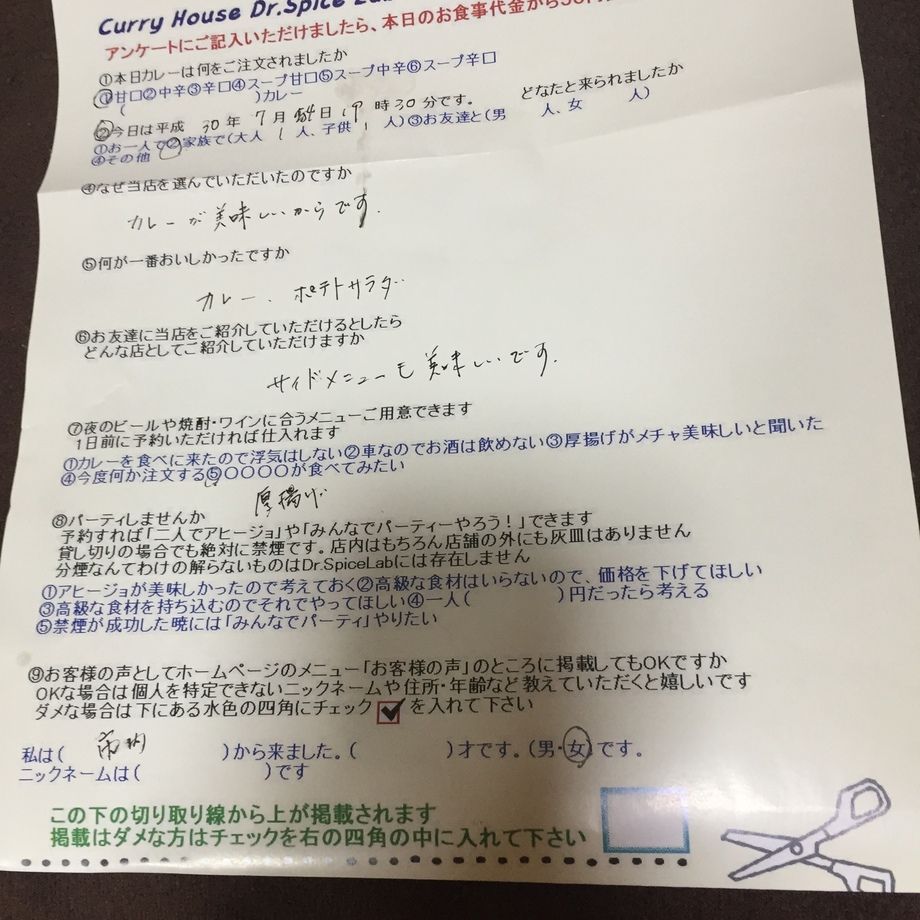 Curry House Dr.Spice
アンケートにご記入いただけましたら、本日のお食事代金から
①本日カレーは何をご注文されましたか
①甘口②中辛③辛口④スープ甘口⑤スープ中辛⑥スープ辛口
( )カレー
②今日は平成 30年 7月 日 19時30分です。 どなたと来られましたか
①お一人で②家族で(大人 1 人、子供 1 人)③お友達と(男 人、女 人)
④その他
④なぜ当店を選んでいただいたのですか
カレーが美味しいからです.
⑤何が一番おいしかったですか
カレー、ポテトサラダ
⑥お友達に当店をご紹介していただけるとしたら
どんな店としてご紹介していただけますか
サイドメニューも美味しいです.
⑦夜のビールや焼酎・ワインに合うメニューご用意できます
1日前に予約いただければ仕入れます
①カレーを食べに来たので浮気はしない②車なのでお酒は飲めない③厚揚げがメチャ美味しいと聞いた
④今度何か注文する⑤〇〇〇〇が食べてみたい
厚揚げ
⑧パーティしませんか
予約すれば「二人でアヒージョ」や「みんなでパーティーやろう!」できます
貸し切りの場合でも絶対に禁煙です。店内はもちろん店舗の外にも灰皿はありません
分煙なんてわけの解らないものはDr.SpiceLabには存在しません
①アヒージョが美味しかったので考えておく②高級な食材はいらないので、価格を下げてほしい
③高級な食材を持ち込むのでそれでやってほしい④一人( )円だったら考える
⑤禁煙が成功した暁には「みんなでパーティ」やりたい
⑨お客様の声としてホームページのメニュー「お客様の声」のところに掲載してもOKですか
OKな場合は個人を特定できないニックネームや住所・年齢など教えていただくと嬉しいです
ダメな場合は下にある水色の四角にチェック を入れて下さい
私は( 市内 )から来ました。( )才です。(男・女)です。
ニックネームは( )です
この下の切り取り線から上が掲載されます
掲載はダメな方はチェックを右の四角の中に入れて下さい